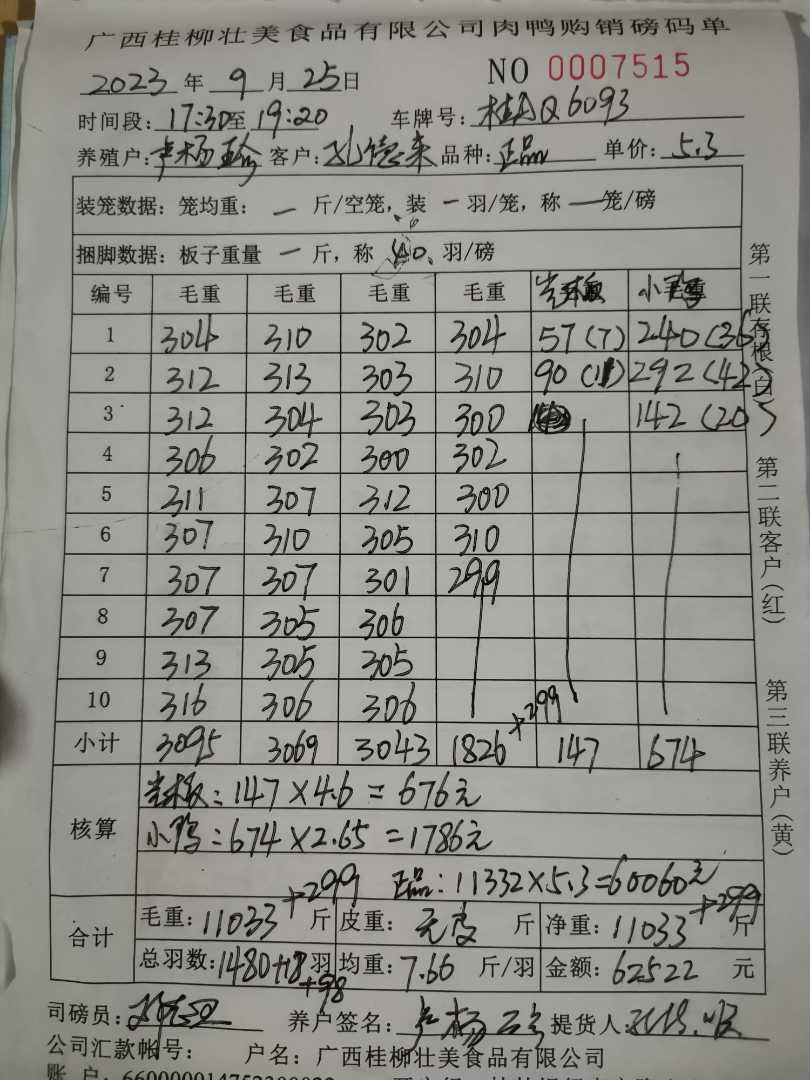 广西桂柳壮美食品有限公司肉鸭购销磅码单
NO 0007515
2023 年 9 月 25 日
时间段: 17:30 至 19:20 车牌号: Q6093
养殖户: 杨 客户: 德来 品种: 正品 单价: 5.3
装笼数据: 笼均重: — 斤/空笼, 装 — 羽/笼, 称 — 笼/磅
捆脚数据: 板子重量 — 斤, 称 40 羽/磅
编号 毛重 毛重 毛重 毛重 小
1 304 310 302 304 57(7) 240(36)
2 312 313 303 310 90(11) 292(42)
3 312 304 303 300 142(20)
4 306 302 300 302
5 311 307 312 300
6 307 310 305 310
7 307 307 301 299
8 307 305 306
9 313 305 305
10 316 306 306
小计 3095 3069 3043 1826 +299 147 674
核算
板: 147×4.6=676元
小鸭: 674×2.65=1786元
正品: 11332×5.3=60060元
合计
毛重: 11033 +299 斤 皮重: 无皮 斤 净重: 11033 +299 斤
总羽数: 1480+18 +98 羽 均重: 7.66 斤/羽 金额: 62522 元
司磅员: 养户签名: 杨 提货人:
公司汇款帐号: 户名: 广西桂柳壮美食品有限公司
账 户:
第一联存根(白)
第二联客户(红)
第三联养户(黄)